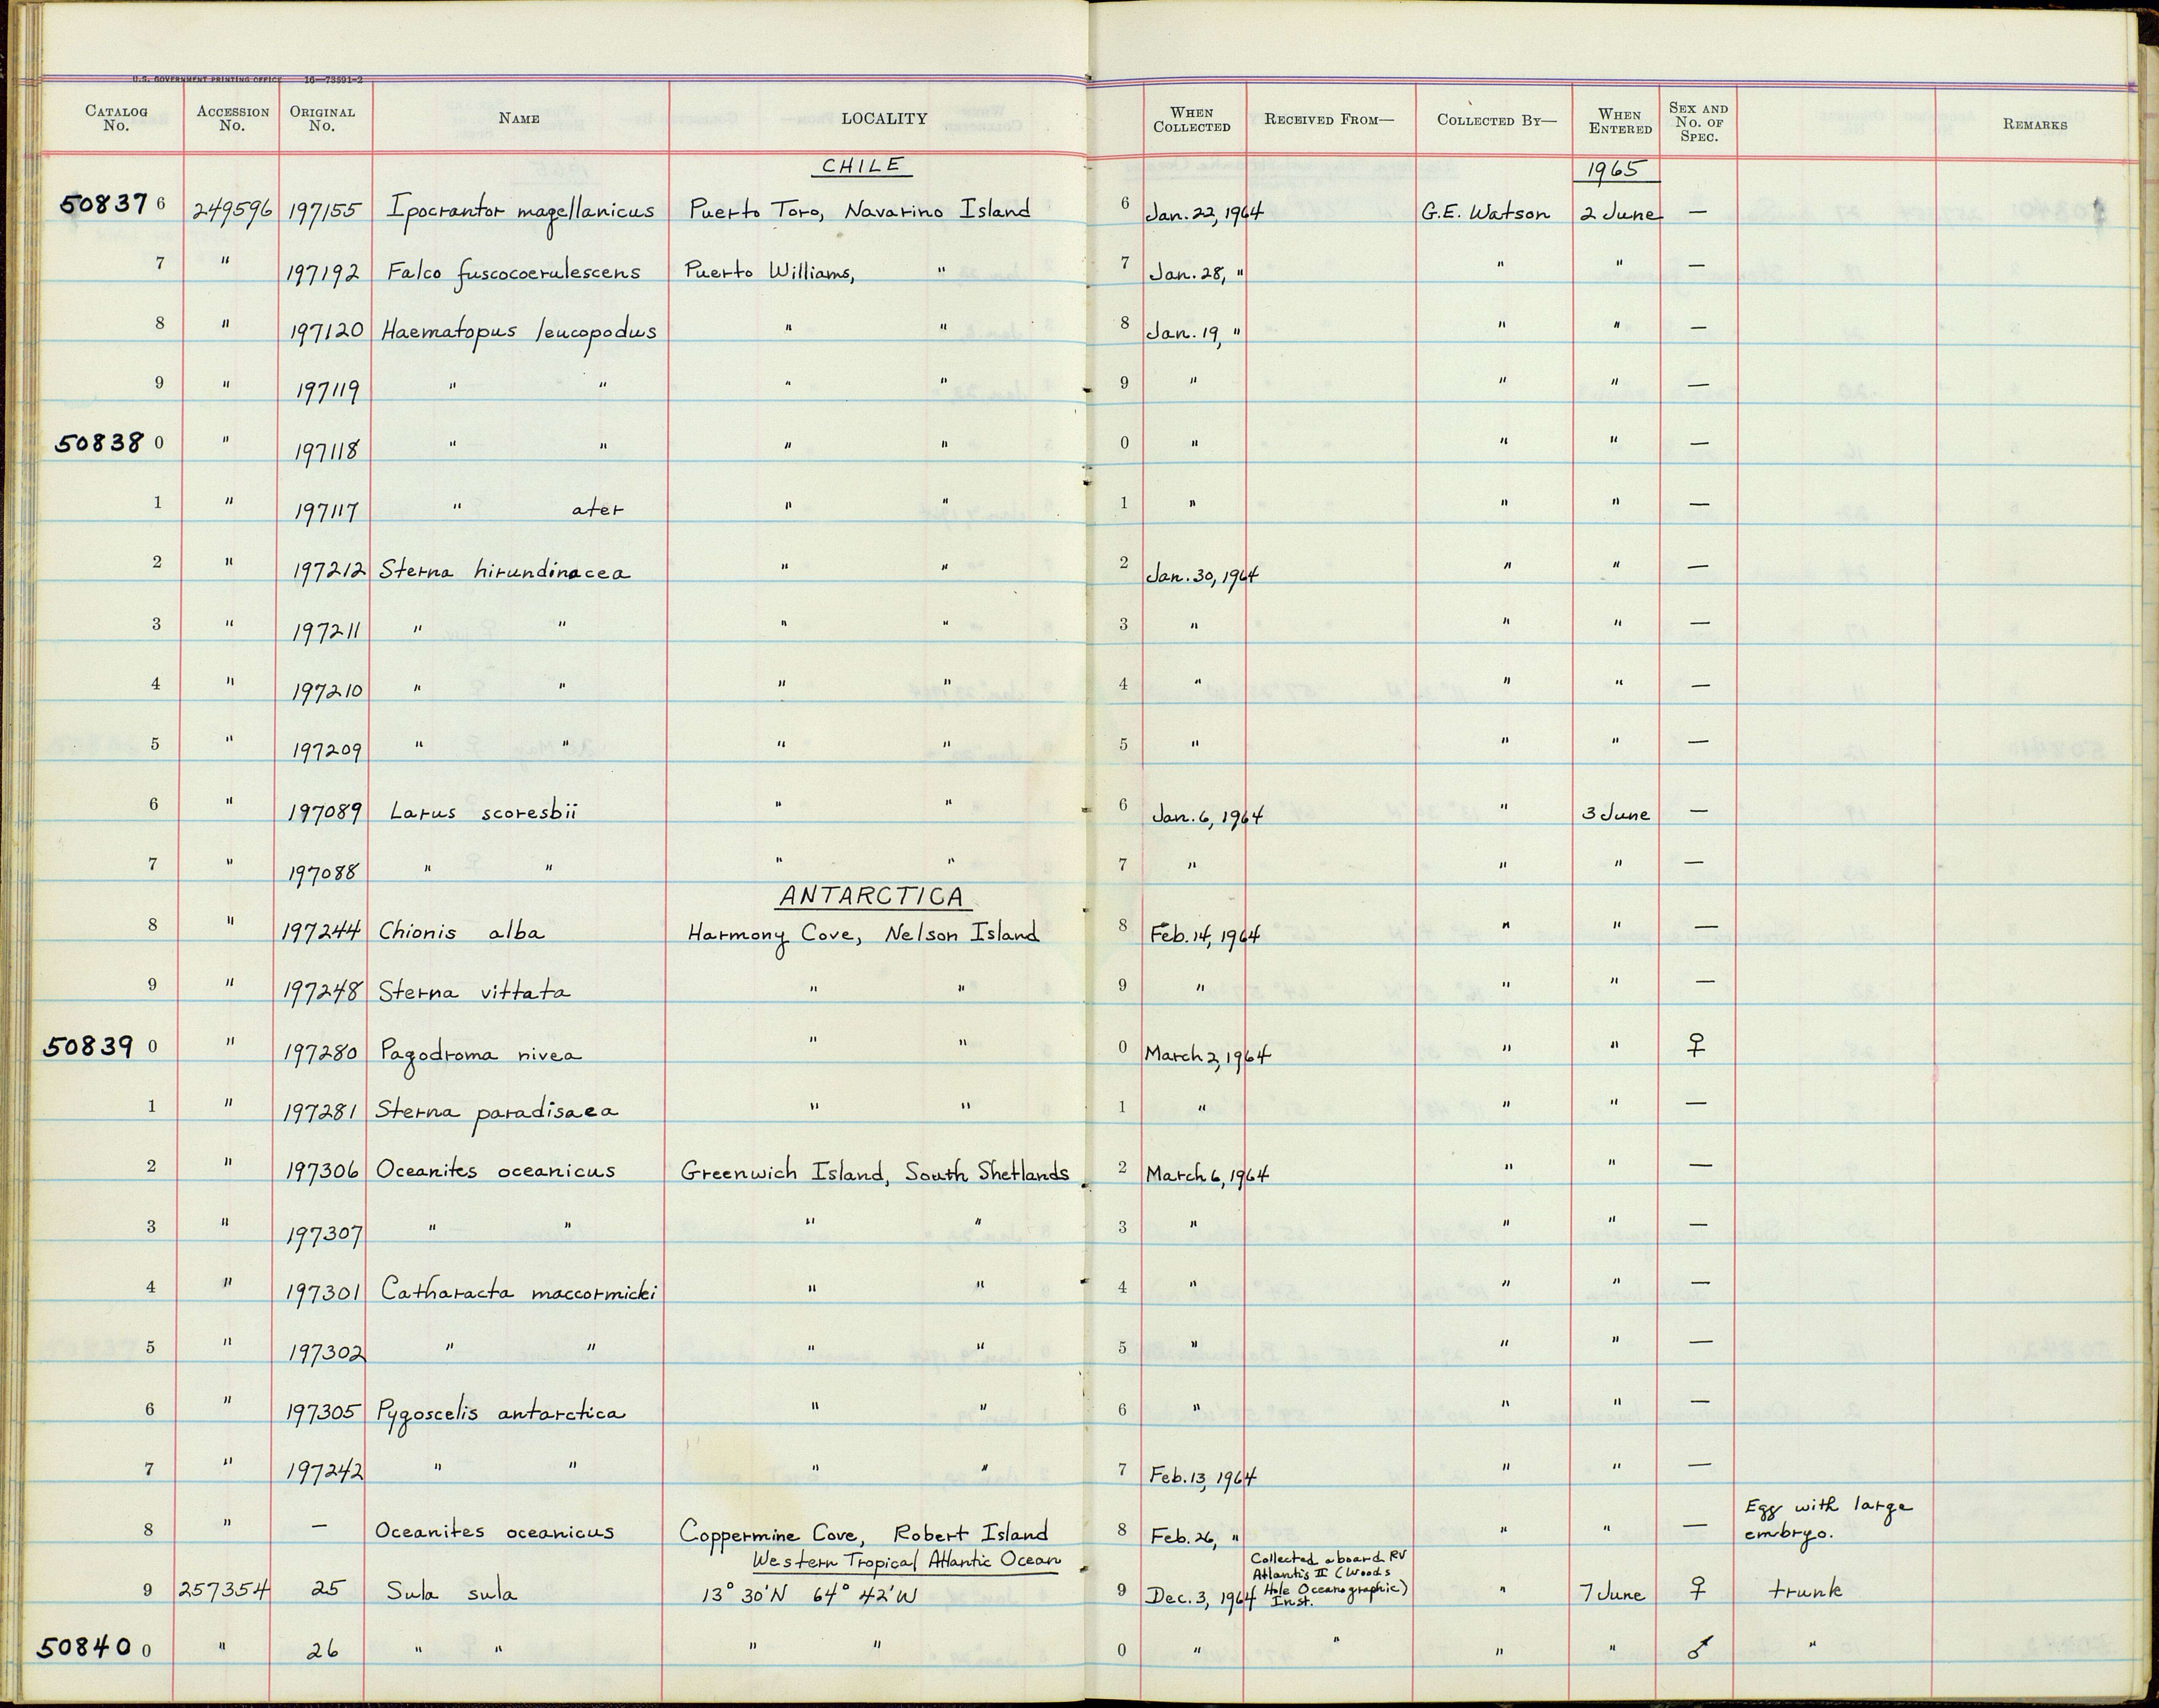 U.S. GOVERNMENT PRINTING OFFICE 16—73591-2
CATALOG No. ACCESSION No. ORIGINAL No. NAME LOCALITY WHEN COLLECTED RECEIVED FROM— COLLECTED BY— WHEN ENTERED SEX AND No. OF SPEC. REMARKS
CHILE 1965
50837 6 249596 197155 Ipocrantor magellanicus Puerto Toro, Navarino Island 6 Jan. 22, 1964 G.E. Watson 2 June —
7 " 197192 Falco fuscocoerulescens Puerto Williams, " 7 Jan. 28, " " " —
8 " 197120 Haematopus leucopodus " " 8 Jan. 19, " " " —
9 " 197119 " " " " 9 " " " —
50838 0 " 197118 " " " " 0 " " " —
1 " 197117 " ater " " 1 " " " —
2 " 197212 Sterna hirundinacea " " 2 Jan. 30, 1964 " " —
3 " 197211 " " " " 3 " " " —
4 " 197210 " " " " 4 " " " —
5 " 197209 " " " " 5 " " " —
6 " 197089 Larus scoresbii " " 6 Jan. 6, 1964 " 3 June —
7 " 197088 " " " " 7 " " " —
ANTARCTICA
8 " 197244 Chionis alba Harmony Cove, Nelson Island 8 Feb. 14, 1964 " " —
9 " 197248 Sterna vittata " " 9 " " " —
50839 0 " 197280 Pagodroma nivea " " 0 March 2, 1964 " " ♀
1 " 197281 Sterna paradisaea " " 1 " " " —
2 " 197306 Oceanites oceanicus Greenwich Island, South Shetlands 2 March 6, 1964 " " —
3 " 197307 " " " " 3 " " " —
4 " 197301 Catharacta maccormicki " " 4 " " " —
5 " 197302 " " " " 5 " " " —
6 " 197305 Pygoscelis antarctica " " 6 " " " —
7 " 197242 " " " " 7 Feb. 13, 1964 " " —
8 " — Oceanites oceanicus Coppermine Cove, Robert Island 8 Feb. 26, " " " — Egg with large embryo.
Western Tropical Atlantic Ocean
9 257354 25 Sula sula 13° 30'N 64° 42'W 9 Dec. 3, 1964 Collected aboard RV Atlantis II (Woods Hole Oceanographic) Inst. " 7 June ♀ trunk
50840 0 " 26 " " " " 0 " " " " ♂ "